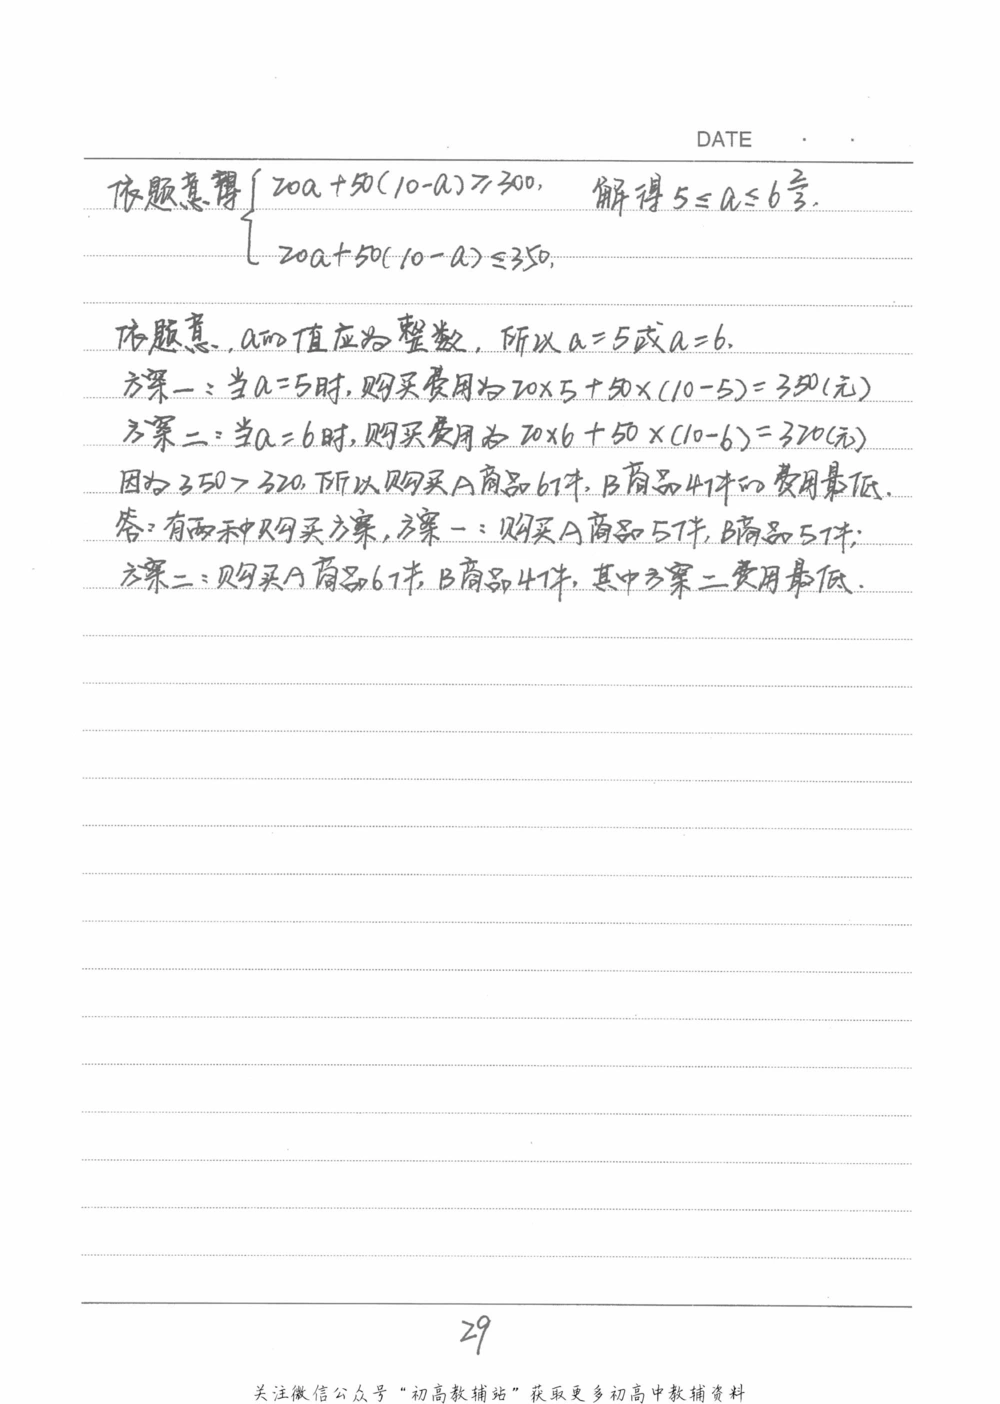 DATE · ·
依题意得{20a+50(10-a)≥300, 解得5≤a≤6⅔.
20a+50(10-a)≤350,
依题意,a的值应为整数,所以a=5或a=6.
方案一:当a=5时,购买费用为20×5+50×(10-5)=350(元)
方案二:当a=6时,购买费用为20×6+50×(10-6)=320(元)
因为350>320,所以购买A商品6件,B商品4件的费用最低.
答:有两种购买方案,方案一:购买A商品5件,B商品5件;
方案二:购买A商品6件,B商品4件,其中方案二费用最低.
29
关注微信公众号“初高教辅站”获取更多初高中教辅资料